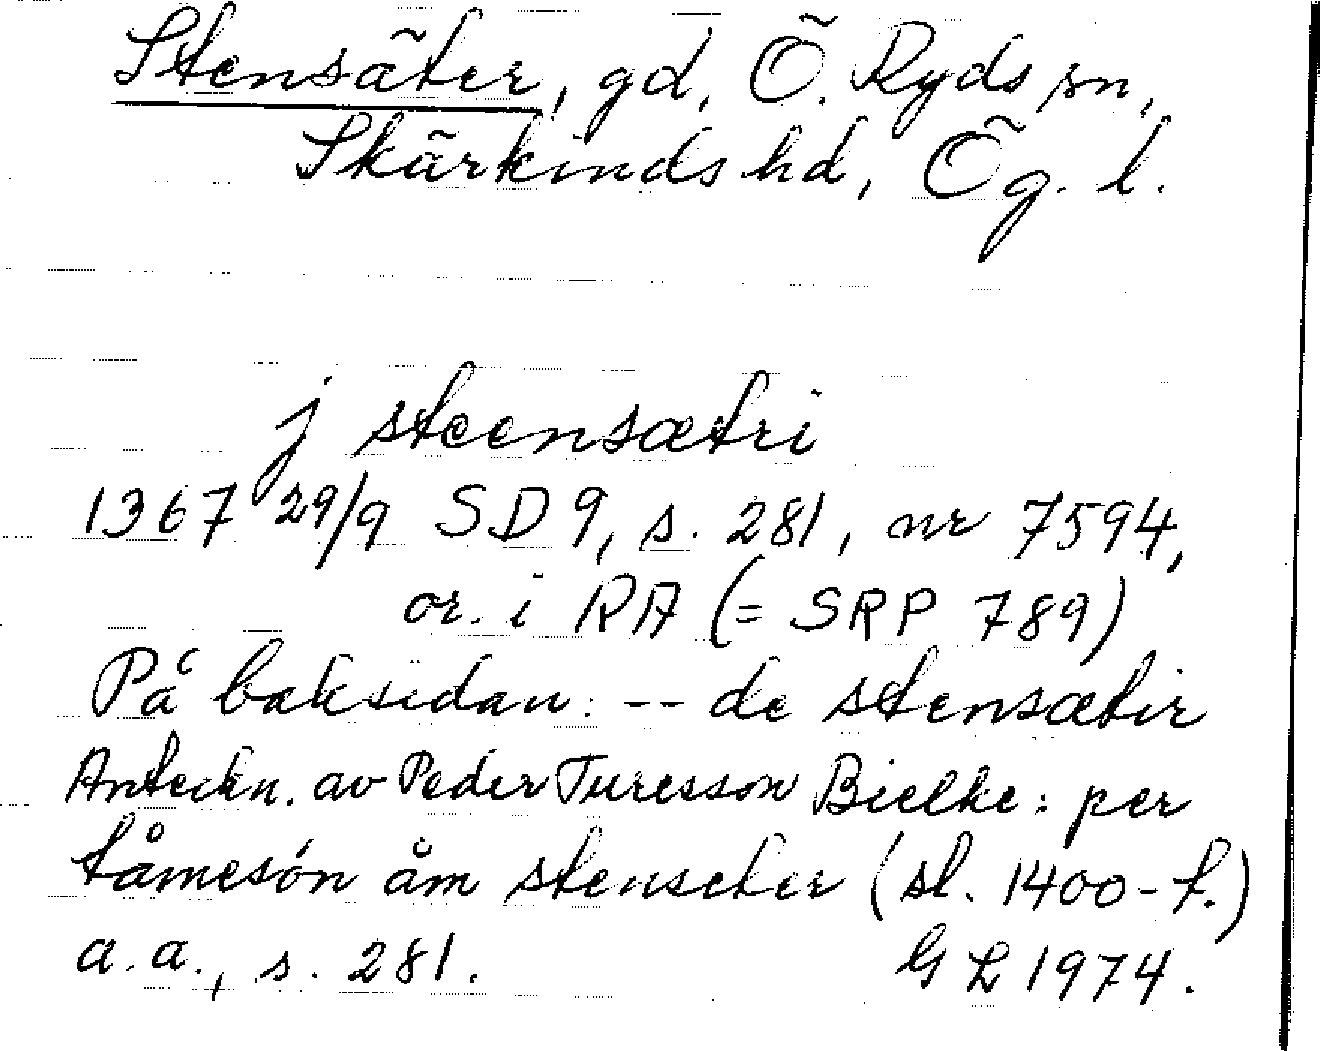 Stensäter, gd, Ö. Ryds sn,
Skärkinds hd, Ög. l.
j steensætri
1367 29/9 SD 9, s. 281, nr 7594,
or. i RA (= SRP 789)
På baksidan: -- de stensætir
Anteckn. av Peder Turesson Bielke: per
tåmesón åm stenseter (sl. 1400-t.)
a.a., s. 281. GL 1974.